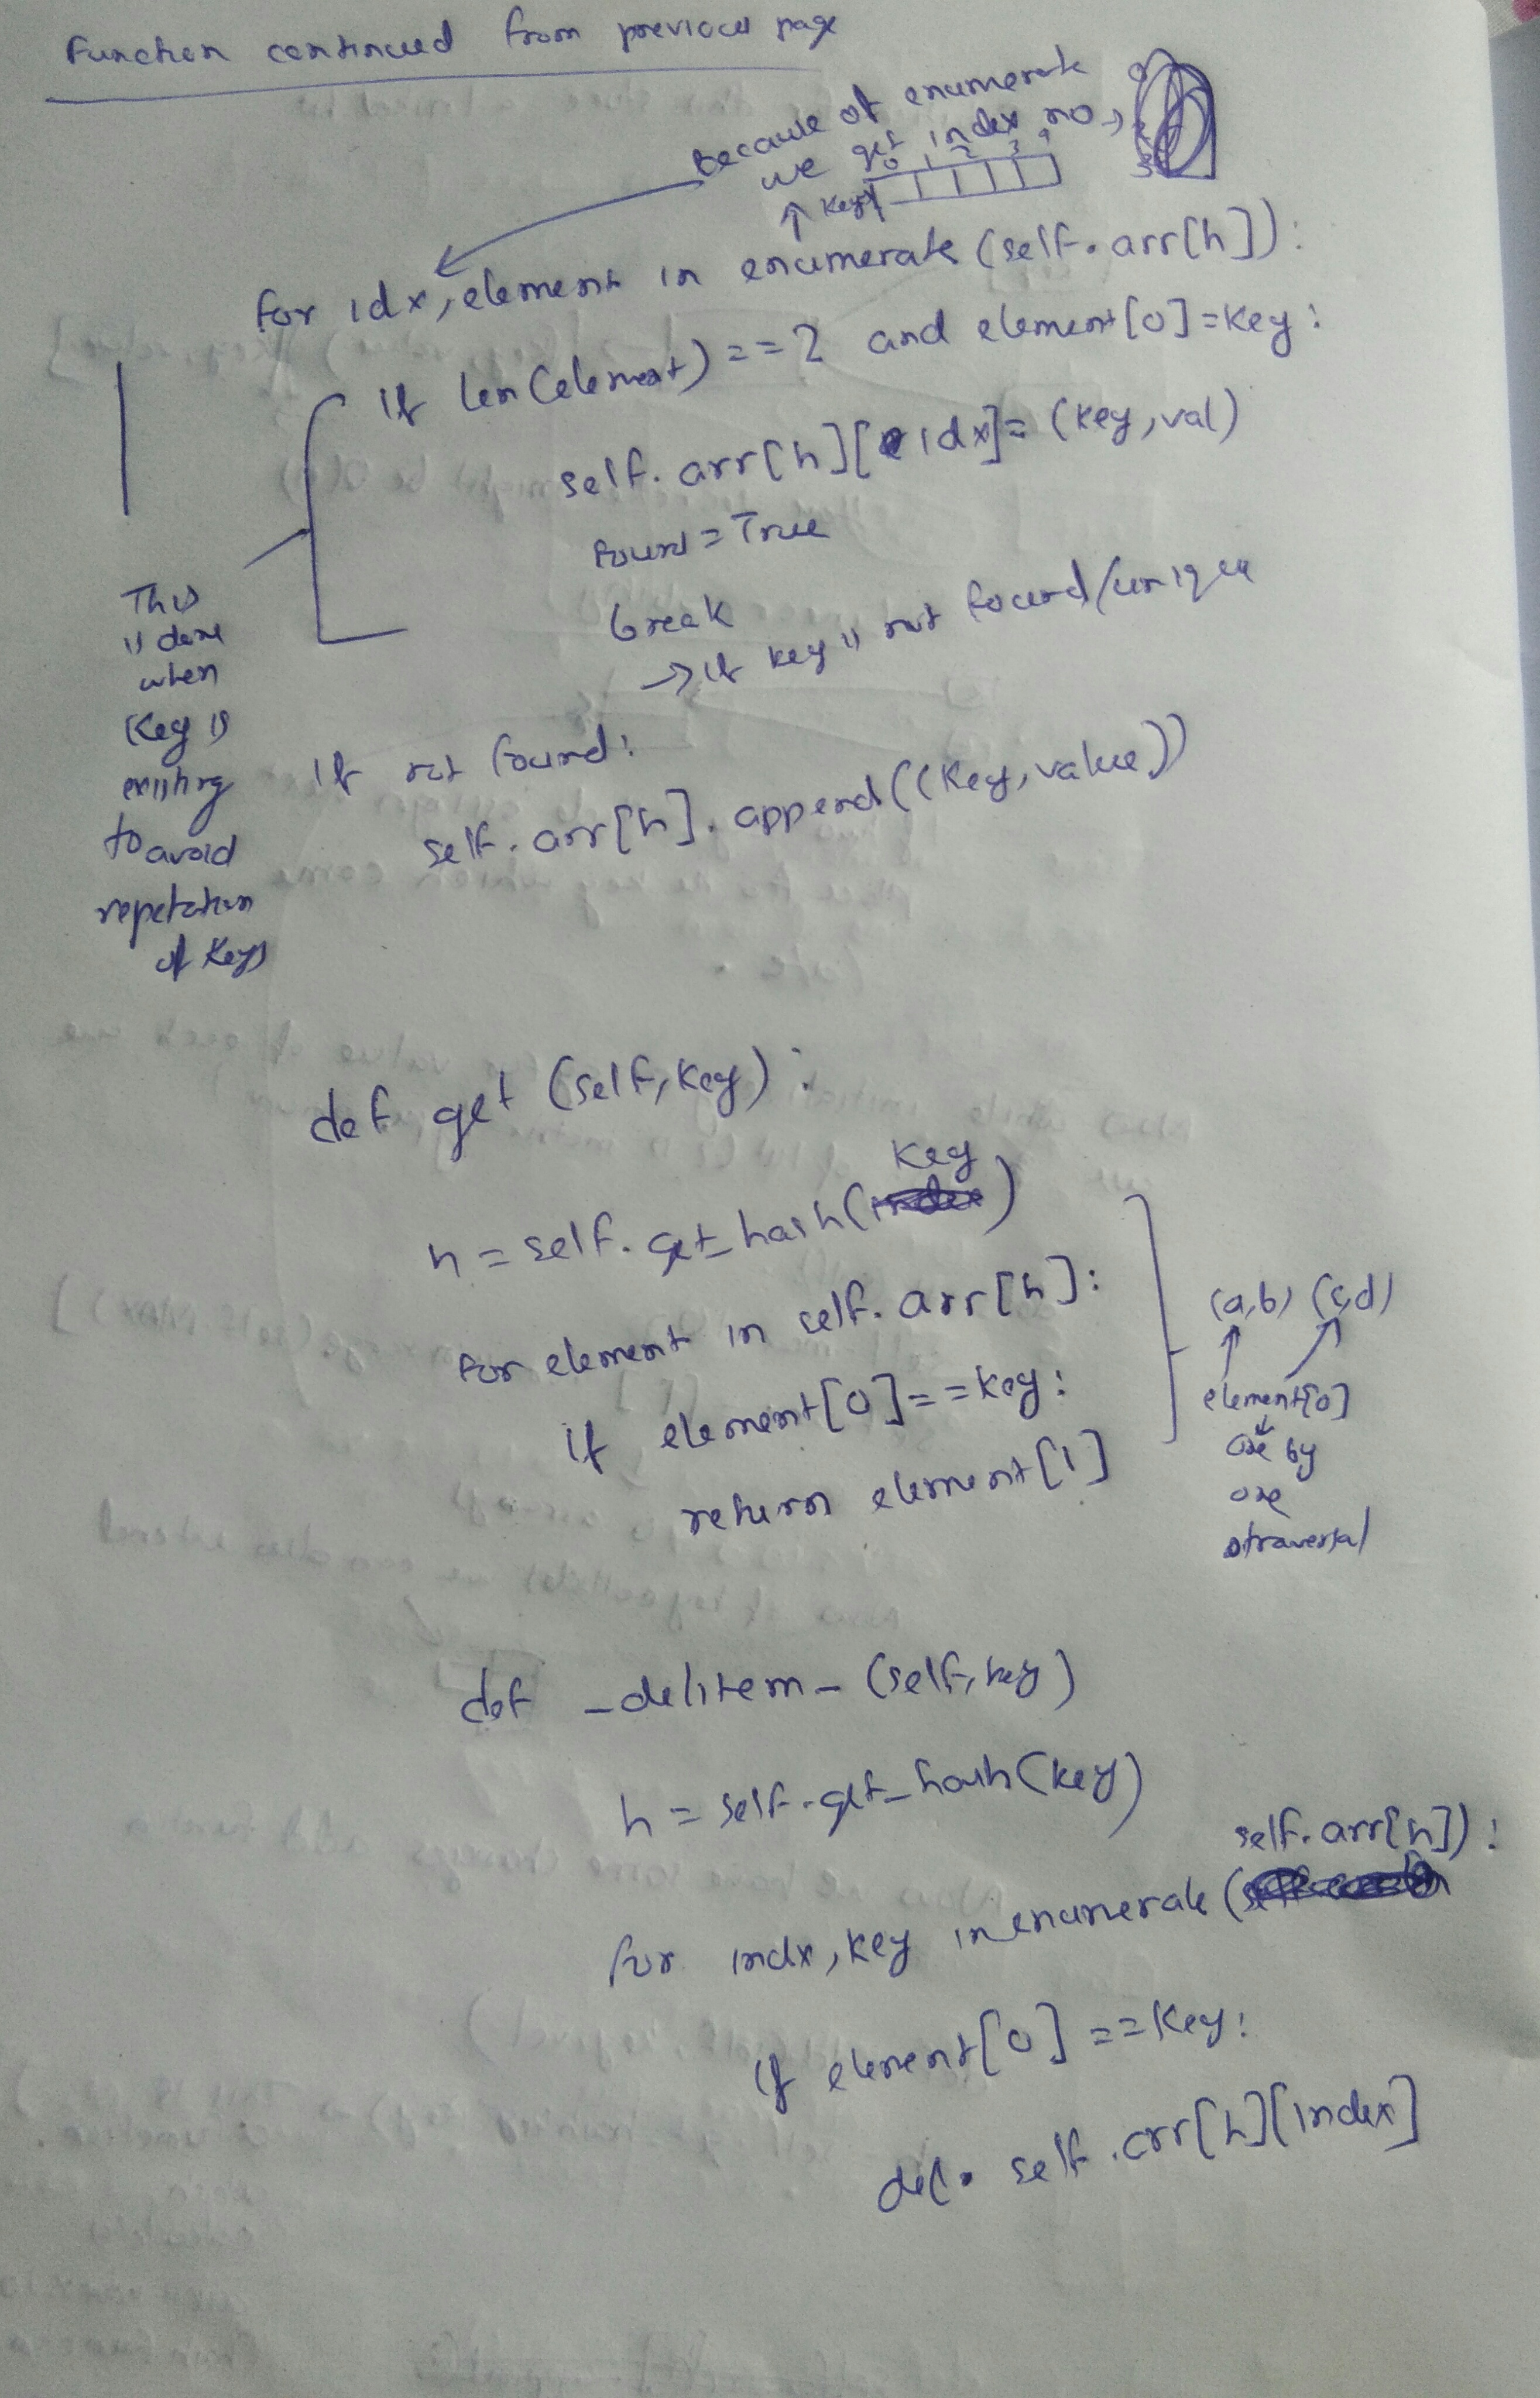 Function continued from previous page
Because of enumerate
we get index no →
0 1 2 3 4
↑ key
for idx, element in enumerate (self.arr[h]):
if len(element) == 2 and element[0]=key:
self.arr[h][idx]= (key, val)
found = True
break
→ if key is not found/unique
This
is done
when
key is
existing
to avoid
repetation
of keys
if not found:
self.arr[h].append((key, value))
def get (self, key):
key
h = self.get_hash(index)
for element in self.arr[h]:
if element[0]==key:
return element[1]
(a,b) (c,d)
element[0]
one by
one
traversal
def _delitem_ (self, key)
h = self.get_hash(key)
self.arr[h]):
for indx, key in enumerate (
if element[0] ==key:
del. self.arr[h][index]